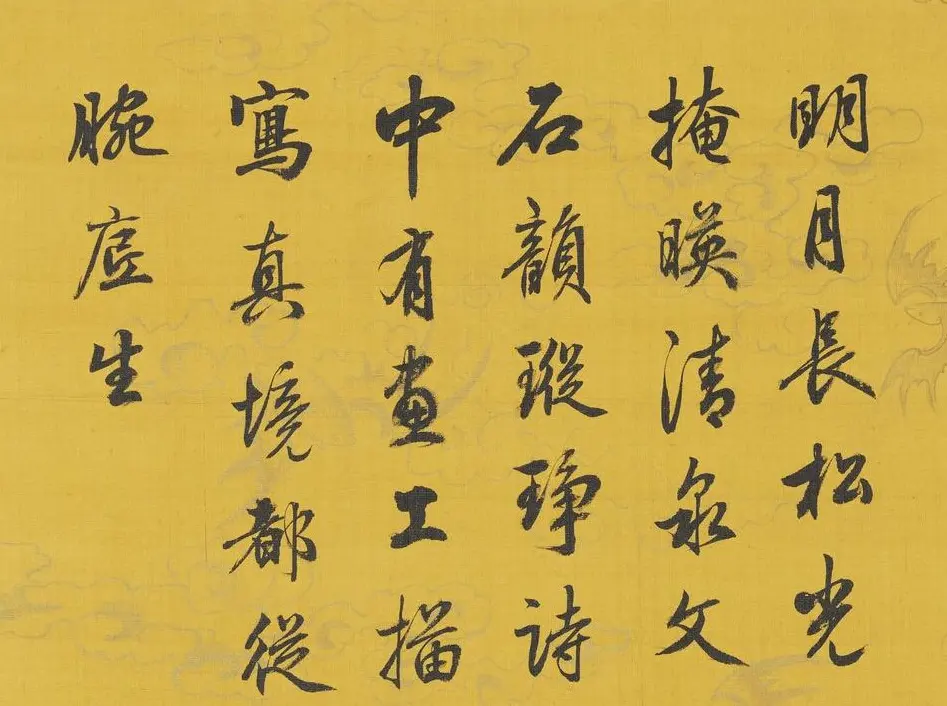 明月長松光
掩暎清泉文
石韻瑽琤詩
中有畫工描
寫真境都從
腕虚生